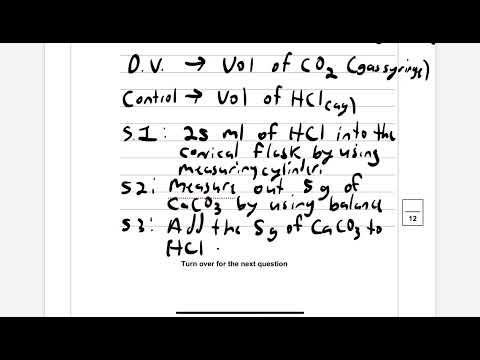 D.V. → Vol of CO2 (gas syringe)
Control → Vol of HCl(aq)
S.1: 25 ml of HCl into the
conical flask by using
measuring cylinder.
S2: Measure out 5g of
CaCO3 by using balance
S3: Add the 5g of CaCO3 to
HCl.
12
Turn over for the next question